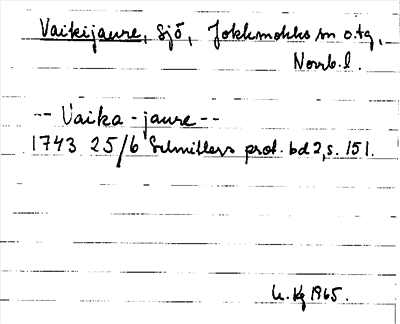 Vaikijaure, sjö, Jokkmokks sn o. tg,
Norrb. l.
-- Vaika - jaure --
1743 25/6 Schnitlers prot. bd 2, s. 151.
1965.